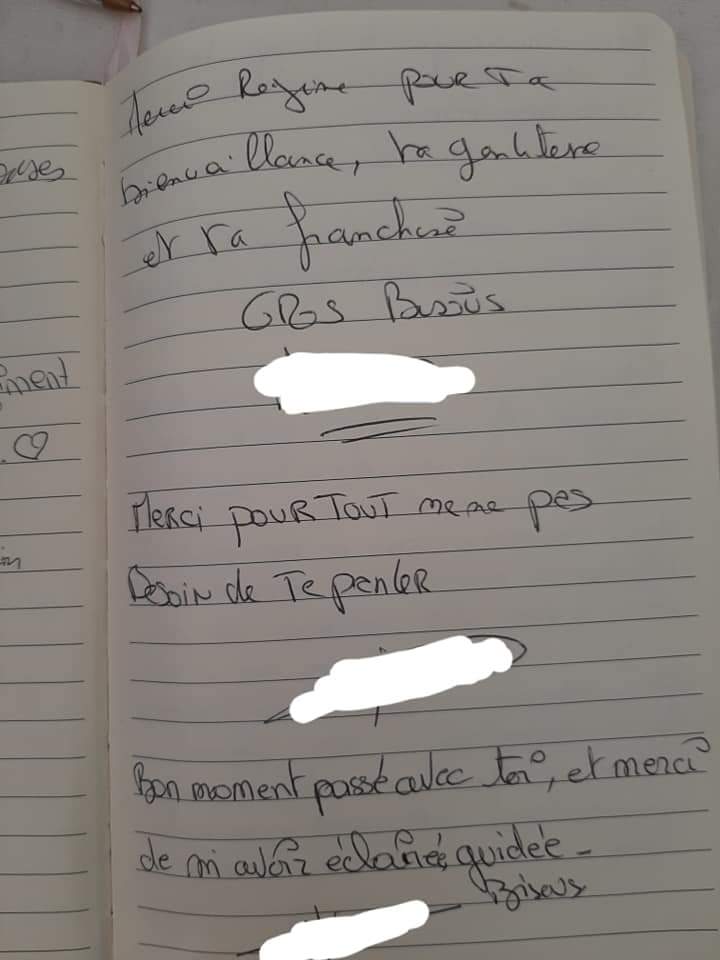 Merci Regine pour Ta
bienvaillance, ta gentillesse
et ta franchise
GROS Bisous
Merci POUR TOUT meme pas
Besoin de Te parler
Bon moment passé avec toi, et merci
de m'avoir éclairée, guidée -
Bisous
ment
in